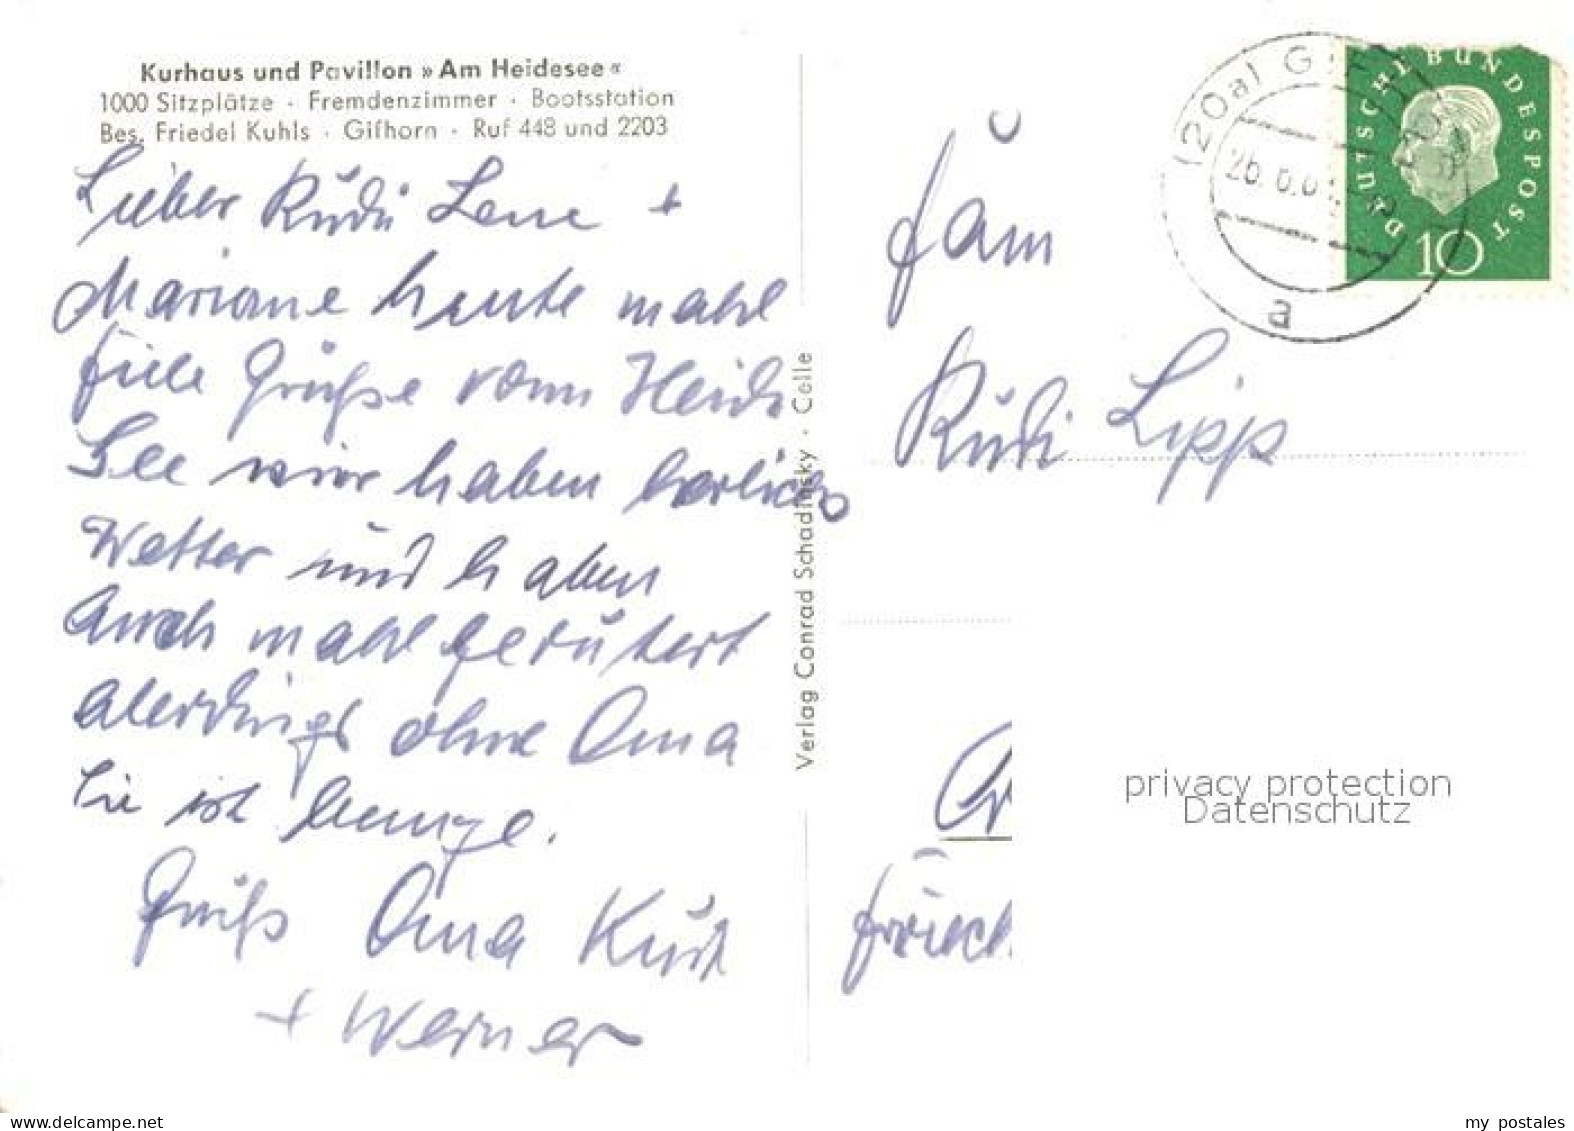 Kurhaus und Pavillon »Am Heidesee«
1000 Sitzplätze · Fremdenzimmer · Bootsstation
Bes. Friedel Kuhls · Gifhorn · Ruf 448 und 2203
Lieber Rudi Lene +
Mariane heute mahl
fiele Grüße vom Heide
See wir haben herliches
Wetter und haben
Auch mahl gerutert
allerdings ohne Oma
Sie ist bange.
Gruß Oma Kurt
+ Werner
Verlag Conrad Schadinsky · Celle
Fam
Rudi Lipp
(20a) G
26.6.6
a
DEUTSCHE BUNDESPOST
10
privacy protection
Datenschutz
www.delcampe.net
my postales